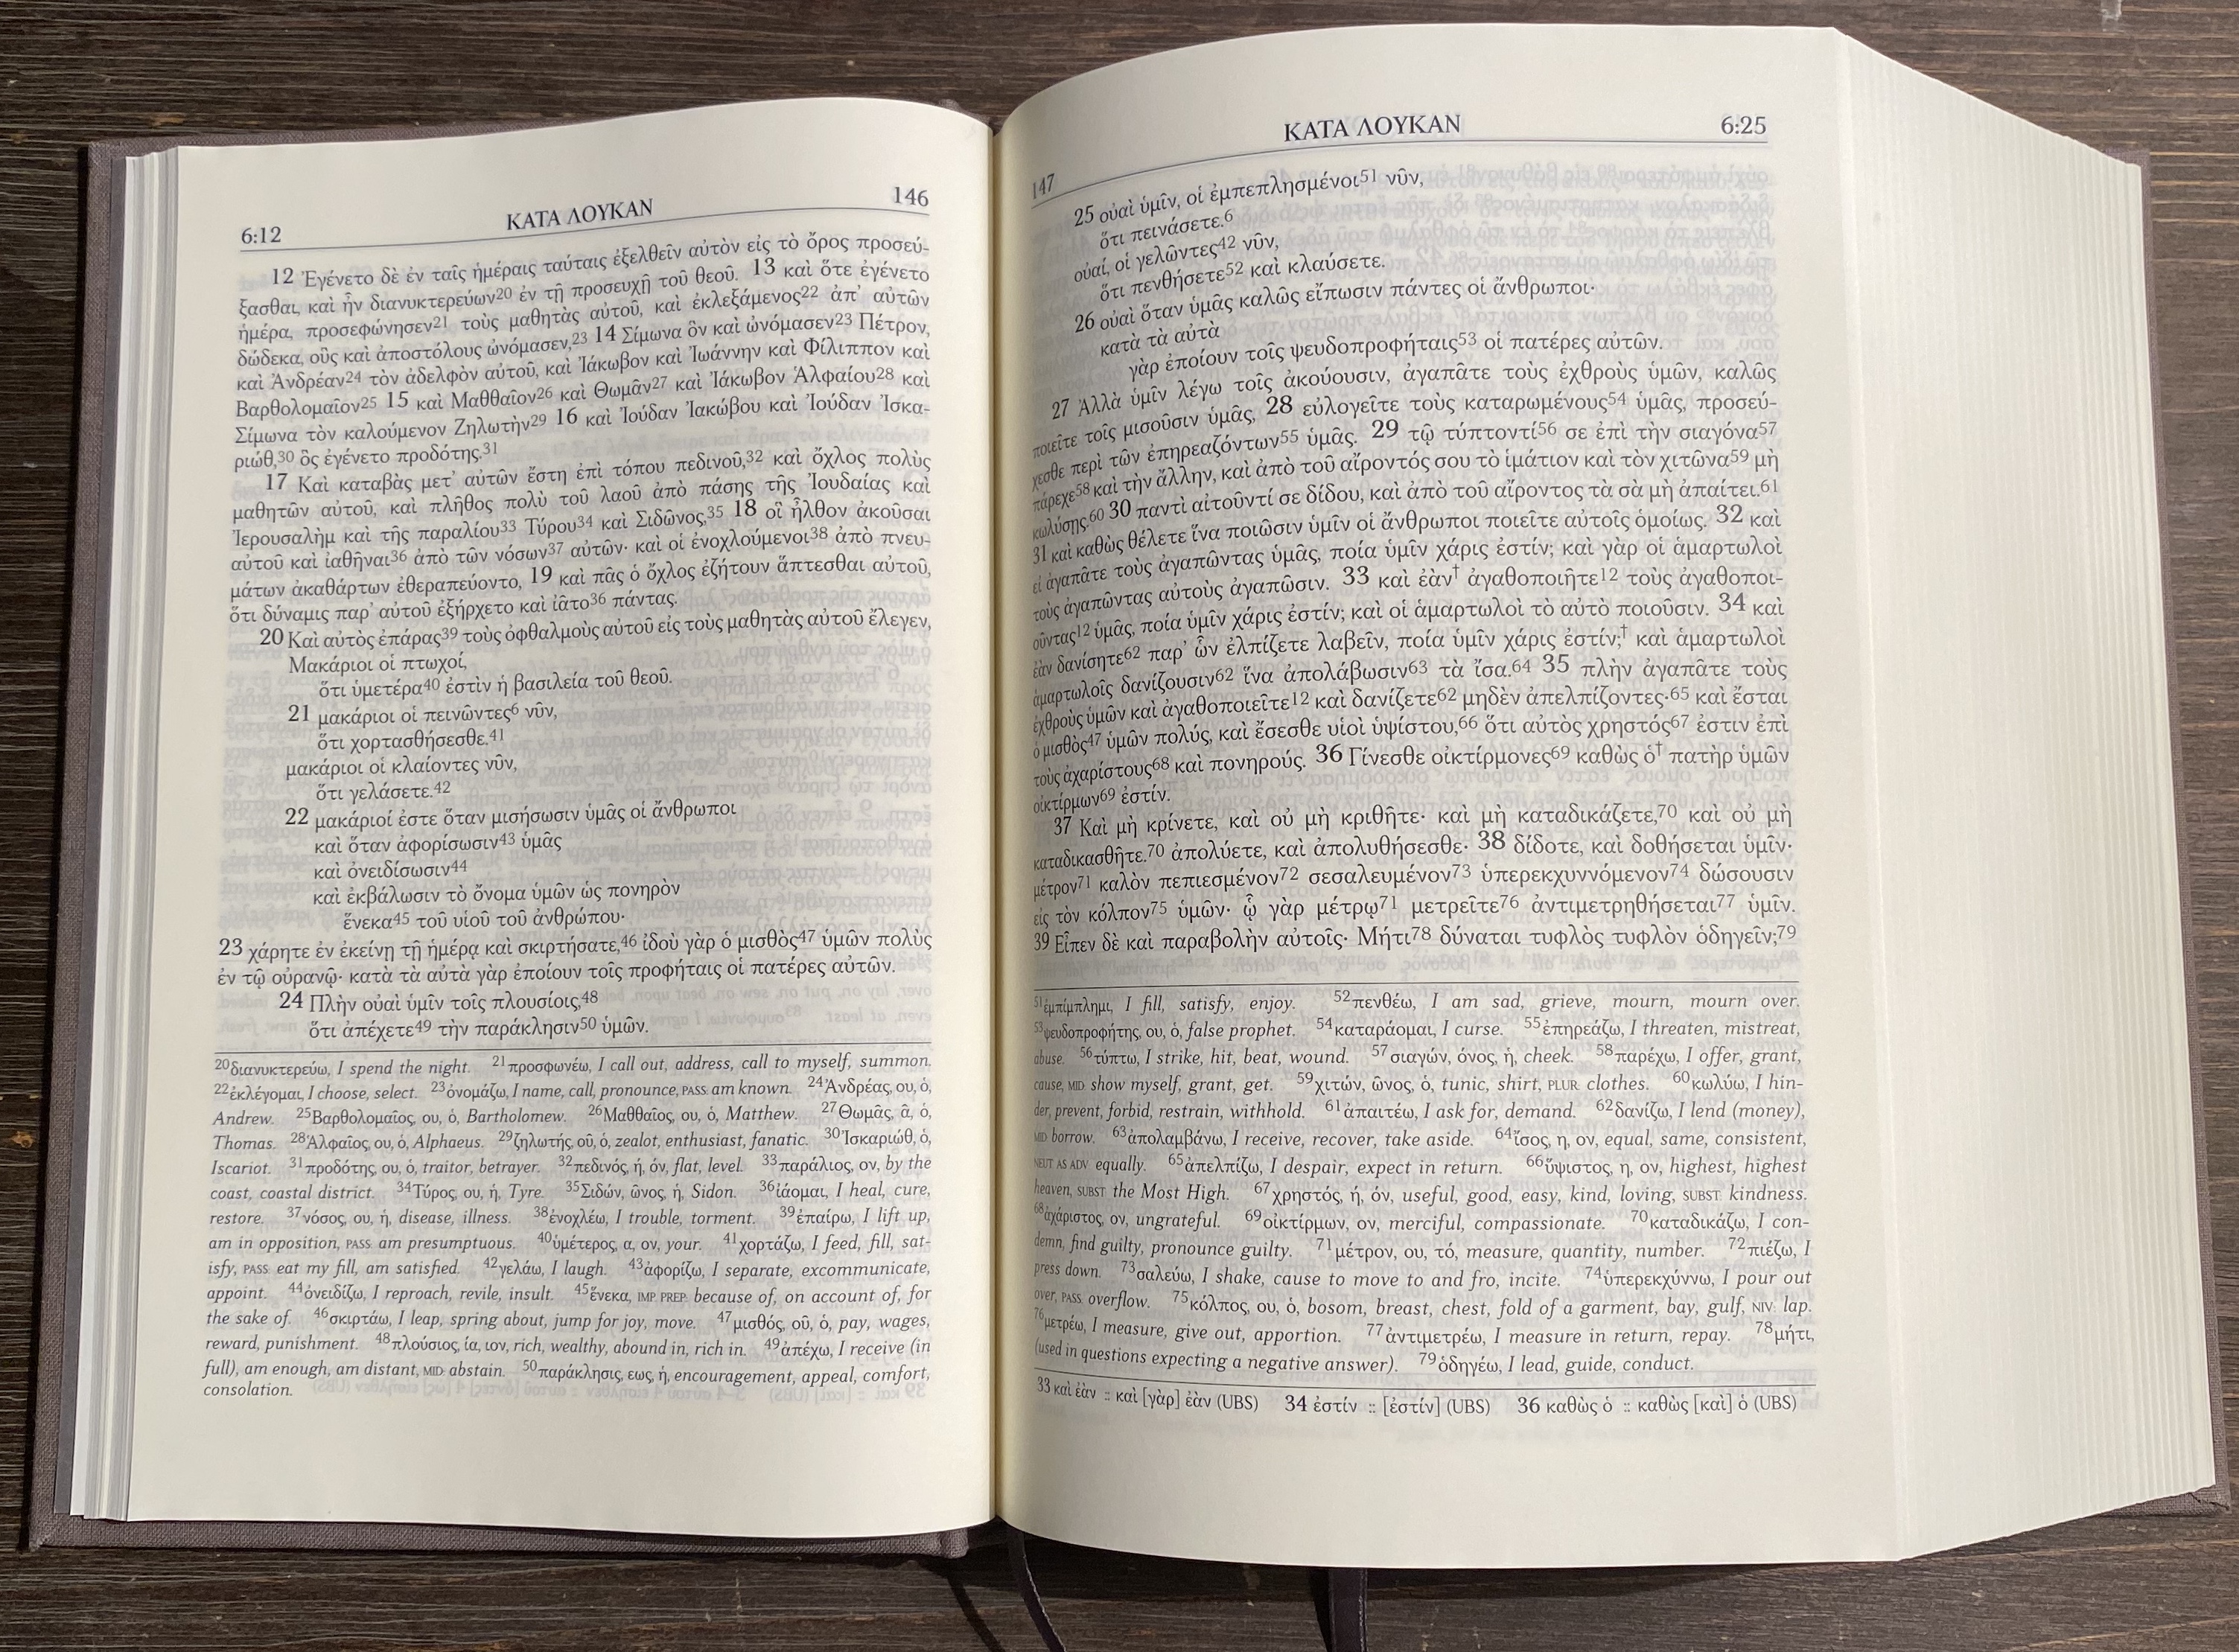 6:12 ΚΑΤΑ ΛΟΥΚΑΝ 146
12 Ἐγένετο δὲ ἐν ταῖς ἡμέραις ταύταις ἐξελθεῖν αὐτὸν εἰς τὸ ὄρος προσεύ-
ξασθαι, καὶ ἦν διανυκτερεύων20 ἐν τῇ προσευχῇ τοῦ θεοῦ. 13 καὶ ὅτε ἐγένετο
ἡμέρα, προσεφώνησεν21 τοὺς μαθητὰς αὐτοῦ, καὶ ἐκλεξάμενος22 ἀπʼ αὐτῶν
δώδεκα, οὓς καὶ ἀποστόλους ὠνόμασεν,23 14 Σίμωνα ὃν καὶ ὠνόμασεν23 Πέτρον,
καὶ Ἀνδρέαν24 τὸν ἀδελφὸν αὐτοῦ, καὶ Ἰάκωβον καὶ Ἰωάννην καὶ Φίλιππον καὶ
Βαρθολομαῖον25 15 καὶ Μαθθαῖον26 καὶ Θωμᾶν27 καὶ Ἰάκωβον Ἁλφαίου28 καὶ
Σίμωνα τὸν καλούμενον Ζηλωτὴν29 16 καὶ Ἰούδαν Ἰακώβου καὶ Ἰούδαν Ἰσκα-
ριώθ,30 ὃς ἐγένετο προδότης.31
17 Καὶ καταβὰς μετʼ αὐτῶν ἔστη ἐπὶ τόπου πεδινοῦ,32 καὶ ὄχλος πολὺς
μαθητῶν αὐτοῦ, καὶ πλῆθος πολὺ τοῦ λαοῦ ἀπὸ πάσης τῆς Ἰουδαίας καὶ
Ἰερουσαλὴμ καὶ τῆς παραλίου33 Τύρου34 καὶ Σιδῶνος,35 18 οἳ ἦλθον ἀκοῦσαι
αὐτοῦ καὶ ἰαθῆναι36 ἀπὸ τῶν νόσων37 αὐτῶν· καὶ οἱ ἐνοχλούμενοι38 ἀπὸ πνευ-
μάτων ἀκαθάρτων ἐθεραπεύοντο, 19 καὶ πᾶς ὁ ὄχλος ἐζήτουν ἅπτεσθαι αὐτοῦ,
ὅτι δύναμις παρʼ αὐτοῦ ἐξήρχετο καὶ ἰᾶτο36 πάντας.
20 Καὶ αὐτὸς ἐπάρας39 τοὺς ὀφθαλμοὺς αὐτοῦ εἰς τοὺς μαθητὰς αὐτοῦ ἔλεγεν,
Μακάριοι οἱ πτωχοί,
ὅτι ὑμετέρα40 ἐστὶν ἡ βασιλεία τοῦ θεοῦ.
21 μακάριοι οἱ πεινῶντες6 νῦν,
ὅτι χορτασθήσεσθε.41
μακάριοι οἱ κλαίοντες νῦν,
ὅτι γελάσετε.42
22 μακάριοί ἐστε ὅταν μισήσωσιν ὑμᾶς οἱ ἄνθρωποι
καὶ ὅταν ἀφορίσωσιν43 ὑμᾶς
καὶ ὀνειδίσωσιν44
καὶ ἐκβάλωσιν τὸ ὄνομα ὑμῶν ὡς πονηρὸν
ἕνεκα45 τοῦ υἱοῦ τοῦ ἀνθρώπου·
23 χάρητε ἐν ἐκείνῃ τῇ ἡμέρᾳ καὶ σκιρτήσατε,46 ἰδοὺ γὰρ ὁ μισθὸς47 ὑμῶν πολὺς
ἐν τῷ οὐρανῷ· κατὰ τὰ αὐτὰ γὰρ ἐποίουν τοῖς προφήταις οἱ πατέρες αὐτῶν.
24 Πλὴν οὐαὶ ὑμῖν τοῖς πλουσίοις,48
ὅτι ἀπέχετε49 τὴν παράκλησιν50 ὑμῶν.
20διανυκτερεύω, I spend the night. 21προσφωνέω, I call out, address, call to myself, summon.
22ἐκλέγομαι, I choose, select. 23ὀνομάζω, I name, call, pronounce, PASS: am known. 24Ἀνδρέας, ου, ὁ,
Andrew. 25Βαρθολομαῖος, ου, ὁ, Bartholomew. 26Μαθθαῖος, ου, ὁ, Matthew. 27Θωμᾶς, ᾶ, ὁ,
Thomas. 28Ἁλφαῖος, ου, ὁ, Alphaeus. 29ζηλωτής, οῦ, ὁ, zealot, enthusiast, fanatic. 30Ἰσκαριώθ, ὁ,
Iscariot. 31προδότης, ου, ὁ, traitor, betrayer. 32πεδινός, ή, όν, flat, level. 33παράλιος, ον, by the
coast, coastal district. 34Τύρος, ου, ἡ, Tyre. 35Σιδών, ῶνος, ἡ, Sidon. 36ἰάομαι, I heal, cure,
restore. 37νόσος, ου, ἡ, disease, illness. 38ἐνοχλέω, I trouble, torment. 39ἐπαίρω, I lift up,
am in opposition, PASS: am presumptuous. 40ὑμέτερος, α, ον, your. 41χορτάζω, I feed, fill, sat-
isfy, PASS: eat my fill, am satisfied. 42γελάω, I laugh. 43ἀφορίζω, I separate, excommunicate,
appoint. 44ὀνειδίζω, I reproach, revile, insult. 45ἕνεκα, IMP. PREP: because of, on account of, for
the sake of. 46σκιρτάω, I leap, spring about, jump for joy, move. 47μισθός, οῦ, ὁ, pay, wages,
reward, punishment. 48πλούσιος, ία, ιον, rich, wealthy, abound in, rich in. 49ἀπέχω, I receive (in
full), am enough, am distant, MID: abstain. 50παράκλησις, εως, ἡ, encouragement, appeal, comfort,
consolation.
147 ΚΑΤΑ ΛΟΥΚΑΝ 6:25
25 οὐαὶ ὑμῖν, οἱ ἐμπεπλησμένοι51 νῦν,
ὅτι πεινάσετε.6
οὐαί, οἱ γελῶντες42 νῦν,
ὅτι πενθήσετε52 καὶ κλαύσετε.
26 οὐαὶ ὅταν ὑμᾶς καλῶς εἴπωσιν πάντες οἱ ἄνθρωποι·
κατὰ τὰ αὐτὰ
γὰρ ἐποίουν τοῖς ψευδοπροφήταις53 οἱ πατέρες αὐτῶν.
27 Ἀλλὰ ὑμῖν λέγω τοῖς ἀκούουσιν, ἀγαπᾶτε τοὺς ἐχθροὺς ὑμῶν, καλῶς
ποιεῖτε τοῖς μισοῦσιν ὑμᾶς, 28 εὐλογεῖτε τοὺς καταρωμένους54 ὑμᾶς, προσεύ-
χεσθε περὶ τῶν ἐπηρεαζόντων55 ὑμᾶς. 29 τῷ τύπτοντί56 σε ἐπὶ τὴν σιαγόνα57
πάρεχε58 καὶ τὴν ἄλλην, καὶ ἀπὸ τοῦ αἴροντός σου τὸ ἱμάτιον καὶ τὸν χιτῶνα59 μὴ
κωλύσῃς.60 30 παντὶ αἰτοῦντί σε δίδου, καὶ ἀπὸ τοῦ αἴροντος τὰ σὰ μὴ ἀπαίτει.61
31 καὶ καθὼς θέλετε ἵνα ποιῶσιν ὑμῖν οἱ ἄνθρωποι ποιεῖτε αὐτοῖς ὁμοίως. 32 καὶ
εἰ ἀγαπᾶτε τοὺς ἀγαπῶντας ὑμᾶς, ποία ὑμῖν χάρις ἐστίν; καὶ γὰρ οἱ ἁμαρτωλοὶ
τοὺς ἀγαπῶντας αὐτοὺς ἀγαπῶσιν. 33 καὶ ἐὰν† ἀγαθοποιῆτε12 τοὺς ἀγαθοποι-
οῦντας12 ὑμᾶς, ποία ὑμῖν χάρις ἐστίν; καὶ οἱ ἁμαρτωλοὶ τὸ αὐτὸ ποιοῦσιν. 34 καὶ
ἐὰν δανίσητε62 παρʼ ὧν ἐλπίζετε λαβεῖν, ποία ὑμῖν χάρις ἐστίν;† καὶ ἁμαρτωλοὶ
ἁμαρτωλοῖς δανίζουσιν62 ἵνα ἀπολάβωσιν63 τὰ ἴσα.64 35 πλὴν ἀγαπᾶτε τοὺς
ἐχθροὺς ὑμῶν καὶ ἀγαθοποιεῖτε12 καὶ δανίζετε62 μηδὲν ἀπελπίζοντες·65 καὶ ἔσται
ὁ μισθὸς47 ὑμῶν πολύς, καὶ ἔσεσθε υἱοὶ ὑψίστου,66 ὅτι αὐτὸς χρηστός67 ἐστιν ἐπὶ
τοὺς ἀχαρίστους68 καὶ πονηρούς. 36 Γίνεσθε οἰκτίρμονες69 καθὼς ὁ† πατὴρ ὑμῶν
οἰκτίρμων69 ἐστίν.
37 Καὶ μὴ κρίνετε, καὶ οὐ μὴ κριθῆτε· καὶ μὴ καταδικάζετε,70 καὶ οὐ μὴ
καταδικασθῆτε.70 ἀπολύετε, καὶ ἀπολυθήσεσθε· 38 δίδοτε, καὶ δοθήσεται ὑμῖν·
μέτρον71 καλὸν πεπιεσμένον72 σεσαλευμένον73 ὑπερεκχυννόμενον74 δώσουσιν
εἰς τὸν κόλπον75 ὑμῶν· ᾧ γὰρ μέτρῳ71 μετρεῖτε76 ἀντιμετρηθήσεται77 ὑμῖν.
39 Εἶπεν δὲ καὶ παραβολὴν αὐτοῖς· Μήτι78 δύναται τυφλὸς τυφλὸν ὁδηγεῖν;79
51ἐμπίμπλημι, I fill, satisfy, enjoy. 52πενθέω, I am sad, grieve, mourn, mourn over.
53ψευδοπροφήτης, ου, ὁ, false prophet. 54καταράομαι, I curse. 55ἐπηρεάζω, I threaten, mistreat,
abuse. 56τύπτω, I strike, hit, beat, wound. 57σιαγών, όνος, ἡ, cheek. 58παρέχω, I offer, grant,
cause, MID: show myself, grant, get. 59χιτών, ῶνος, ὁ, tunic, shirt, PLUR: clothes. 60κωλύω, I hin-
der, prevent, forbid, restrain, withhold. 61ἀπαιτέω, I ask for, demand. 62δανίζω, I lend (money),
MID: borrow. 63ἀπολαμβάνω, I receive, recover, take aside. 64ἴσος, η, ον, equal, same, consistent,
NEUT AS ADV: equally. 65ἀπελπίζω, I despair, expect in return. 66ὕψιστος, η, ον, highest, highest
heaven, SUBST: the Most High. 67χρηστός, ή, όν, useful, good, easy, kind, loving, SUBST: kindness.
68ἀχάριστος, ον, ungrateful. 69οἰκτίρμων, ον, merciful, compassionate. 70καταδικάζω, I con-
demn, find guilty, pronounce guilty. 71μέτρον, ου, τό, measure, quantity, number. 72πιέζω, I
press down. 73σαλεύω, I shake, cause to move to and fro, incite. 74ὑπερεκχύννω, I pour out
over, PASS: overflow. 75κόλπος, ου, ὁ, bosom, breast, chest, fold of a garment, bay, gulf, NIV: lap.
76μετρέω, I measure, give out, apportion. 77ἀντιμετρέω, I measure in return, repay. 78μήτι,
(used in questions expecting a negative answer). 79ὁδηγέω, I lead, guide, conduct.
33 καὶ ἐὰν :: καὶ [γὰρ] ἐὰν (UBS) 34 ἐστίν :: [ἐστίν] (UBS) 36 καθὼς ὁ :: καθὼς [καὶ] ὁ (UBS)